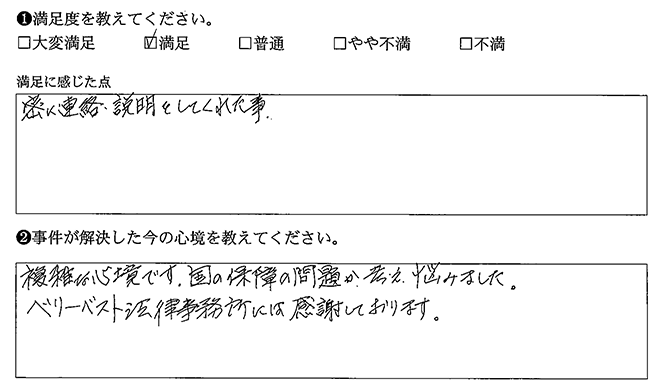 ❶満足度を教えてください。
□大変満足 ☑満足 □普通 □やや不満 □不満
満足に感じた点
密に連絡・説明をしてくれた事.
❷事件が解決した今の心境を教えてください。
複雑な心境です。国の保障の問題か、考え、悩みました。
ベリーベスト法律事務所には感謝しております。